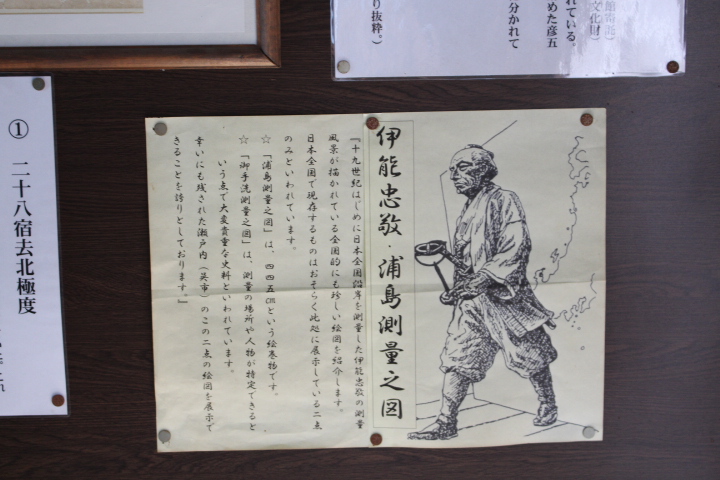 館寄託）
文化財）
れている。
めた彦五
分かれて
り抜粋。）
伊能忠敬・浦島測量之図
『十九世紀はじめに日本全国沿岸を測量した伊能忠敬の測量
風景が描かれている全国的にも珍しい絵図を紹介します。
日本全国で現存するものはおそらく此処に展示している二点
のみといわれています。
☆「浦島測量之図」は、四四五㎝という絵巻物です。
☆「御手洗測量之図」は、測量の場所や人物が特定できると
いう点で大変貴重な史料といわれています。
幸いにも残された瀬戸内（呉市）のこの二点の絵図を展示で
きることを誇りとしております。』
① 二十八宿去北極度